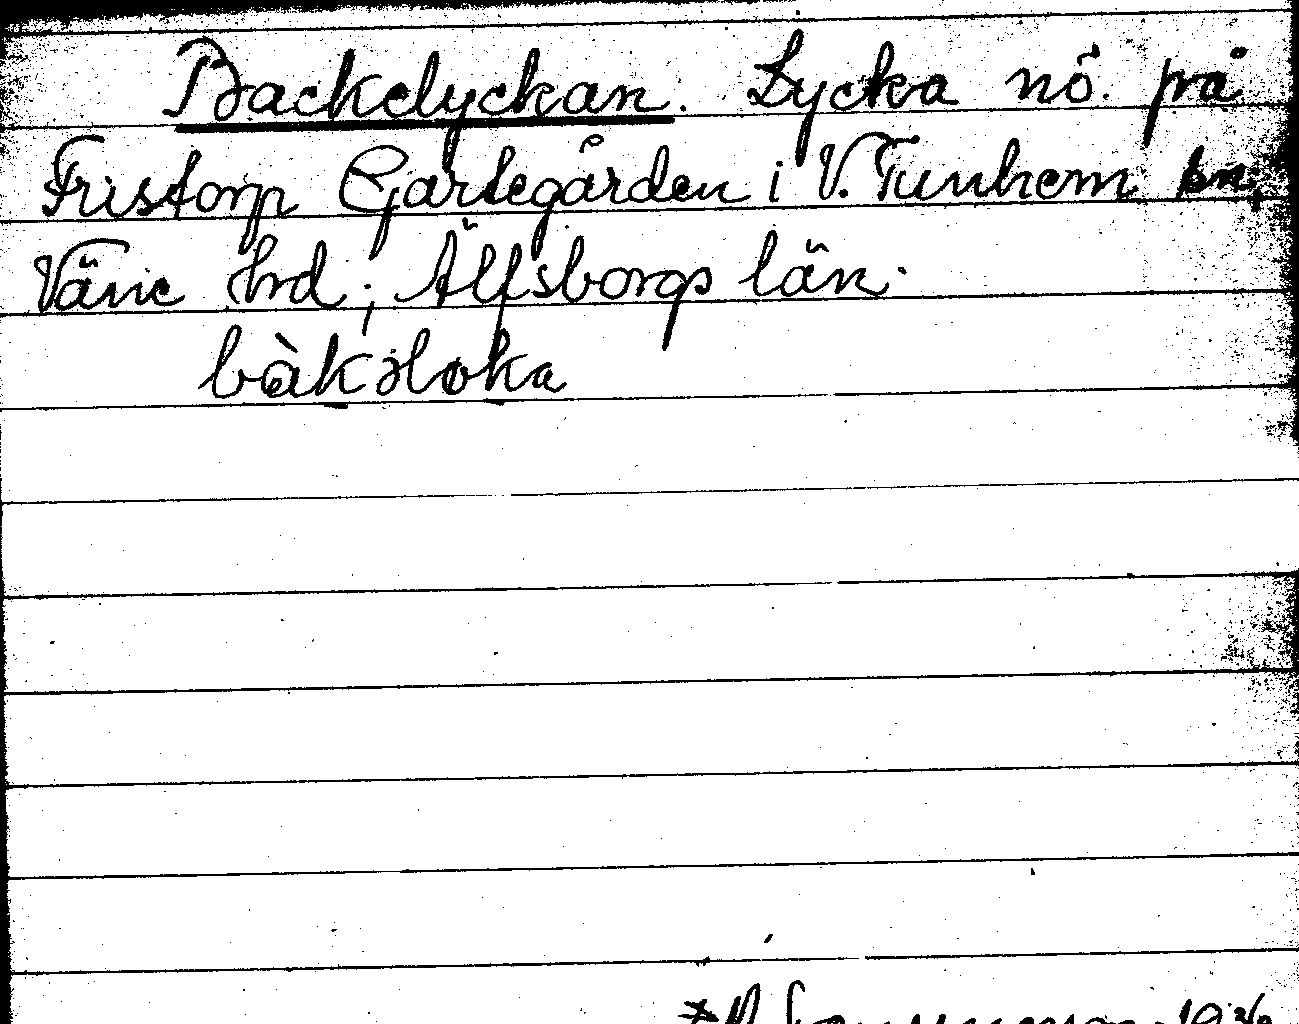 Backelyckan. Lycka nö. på
Fristorp Gartegården i V. Tunhem sn,
Väne hrd; Älfsborgs län.
bàkəloka